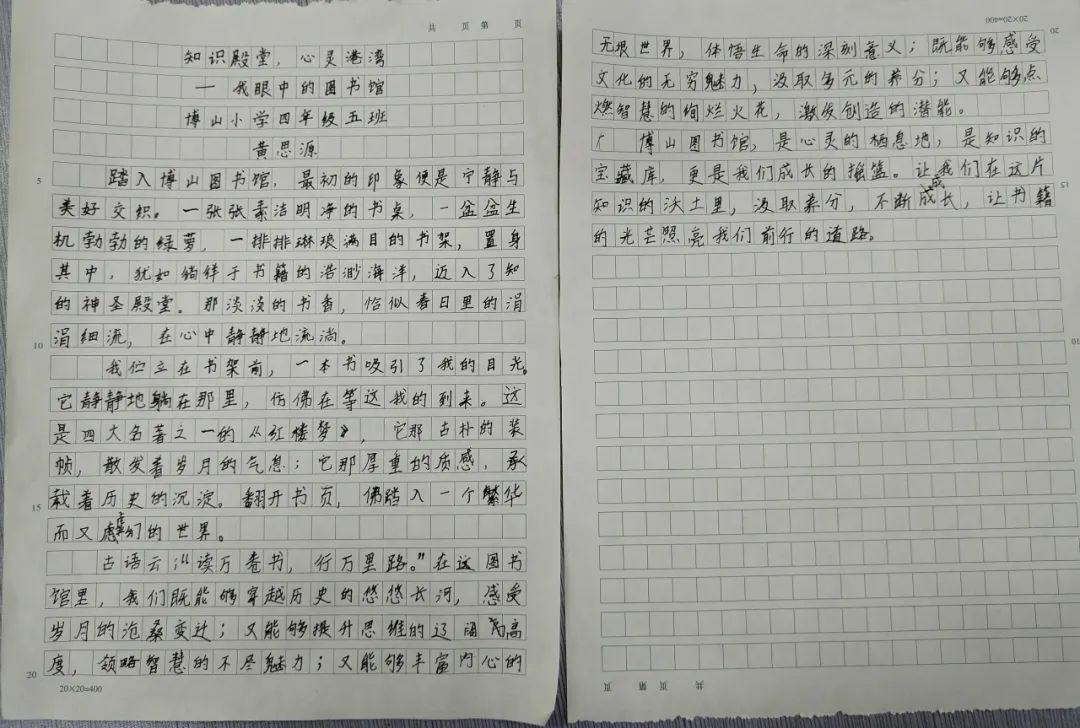 共 页 第 页
知识殿堂，心灵港湾
— 我眼中的图书馆
博山小学四年级五班
黄思源
踏入博山图书馆，最初的印象便是宁静与
美好交织。一张张素洁明净的书桌，一盆盆生
机勃勃的绿萝，一排排琳琅满目的书架，置身
其中，犹如徜徉于书籍的浩渺海洋，迈入了知
的神圣殿堂。那淡淡的书香，恰似春日里的涓
涓细流，在心中静静地流淌。
我伫立在书架前，一本书吸引了我的目光。
它静静地躺在那里，仿佛在等这我的到来。这
是四大名著之一的《红楼梦》，它那古朴的装
帧，散发着岁月的气息；它那厚重的质感，承
载着历史的沉淀。翻开书页，佛踏入一个繁华
而又虚幻的世界。
古语云：“读万卷书，行万里路。”在这图书
馆里，我们既能够穿越历史的悠悠长河，感受
岁月的沧桑变迁；又能够提升思维的辽阔高
度，领略智慧的不尽魅力；又能够丰富内心的
5
10
15
20
20×20=400
20×20=400
无垠世界，体悟生命的深刻意义；既能够感受
文化的无穷魅力，汲取多元的养分；又能够点
燃智慧的绚烂火花，激发创造的潜能。
博山图书馆，是心灵的栖息地，是知识的
宝藏库，更是我们成长的摇篮。让我们在这片
知识的沃土里，汲取养分，不断成长，让书籍
的光芒照亮我们前行的道路。
20
15
10
共 页 第 页